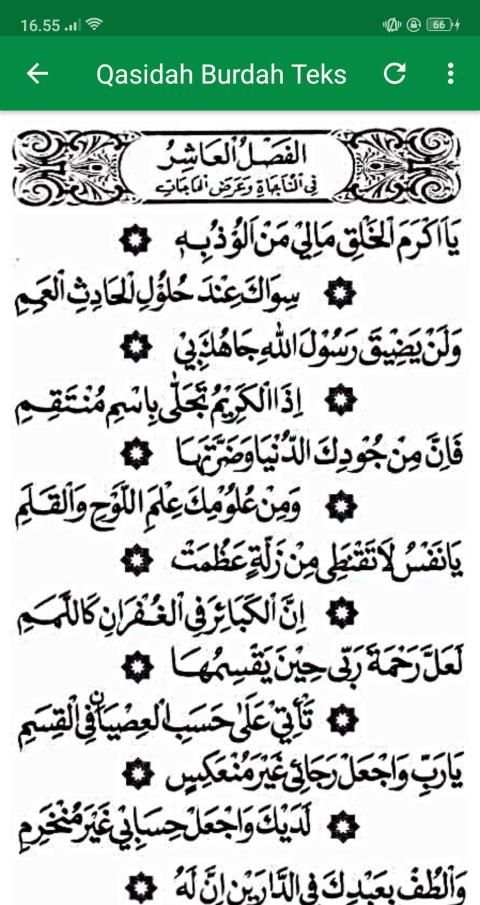 16.55
66
Qasidah Burdah Teks
الفَصْلُ العَاشِرُ
فِي المُنَاجَاةِ وَعَرْضِ الحَاجَاتِ
يَا اَكْرَمَ الْخَلْقِ مَالِيْ مَنْ اَلُوْذُ بِهِ
سِوَاكَ عِنْدَ حُلُوْلِ الْحَادِثِ الْعَمِمِ
وَلَنْ يَضِيْقَ رَسُوْلَ اللهِ جَاهُكَ بِيْ
إِذَا الْكَرِيْمُ تَجَلّٰى بِاسْمِ مُنْتَقِمِ
فَاِنَّ مِنْ جُوْدِكَ الدُّنْيَا وَضَرَّتَهَا
وَمِنْ عُلُوْمِكَ عِلْمَ اللَّوْحِ وَالْقَلَمِ
يَا نَفْسُ لَا تَقْنَطِى مِنْ زَلَّةٍ عَظُمَتْ
اِنَّ الْكَبَائِرَ فِى الْغُفْرَانِ كَاللَّمَمِ
لَعَلَّ رَحْمَةَ رَبِّى حِيْنَ يَقْسِمُهَا
تَأْتِيْ عَلَى حَسَبِ الْعِصْيَانِ فِي الْقِسَمِ
يَارَبِّ وَاجْعَلْ رَجَائِى غَيْرَ مُنْعَكِسٍ
لَدَيْكَ وَاجْعَلْ حِسَابِيْ غَيْرَ مُنْخَرِمِ
وَالْطُفْ بِعَبْدِكَ فِى الدَّارَيْنِ اِنَّ لَهُ